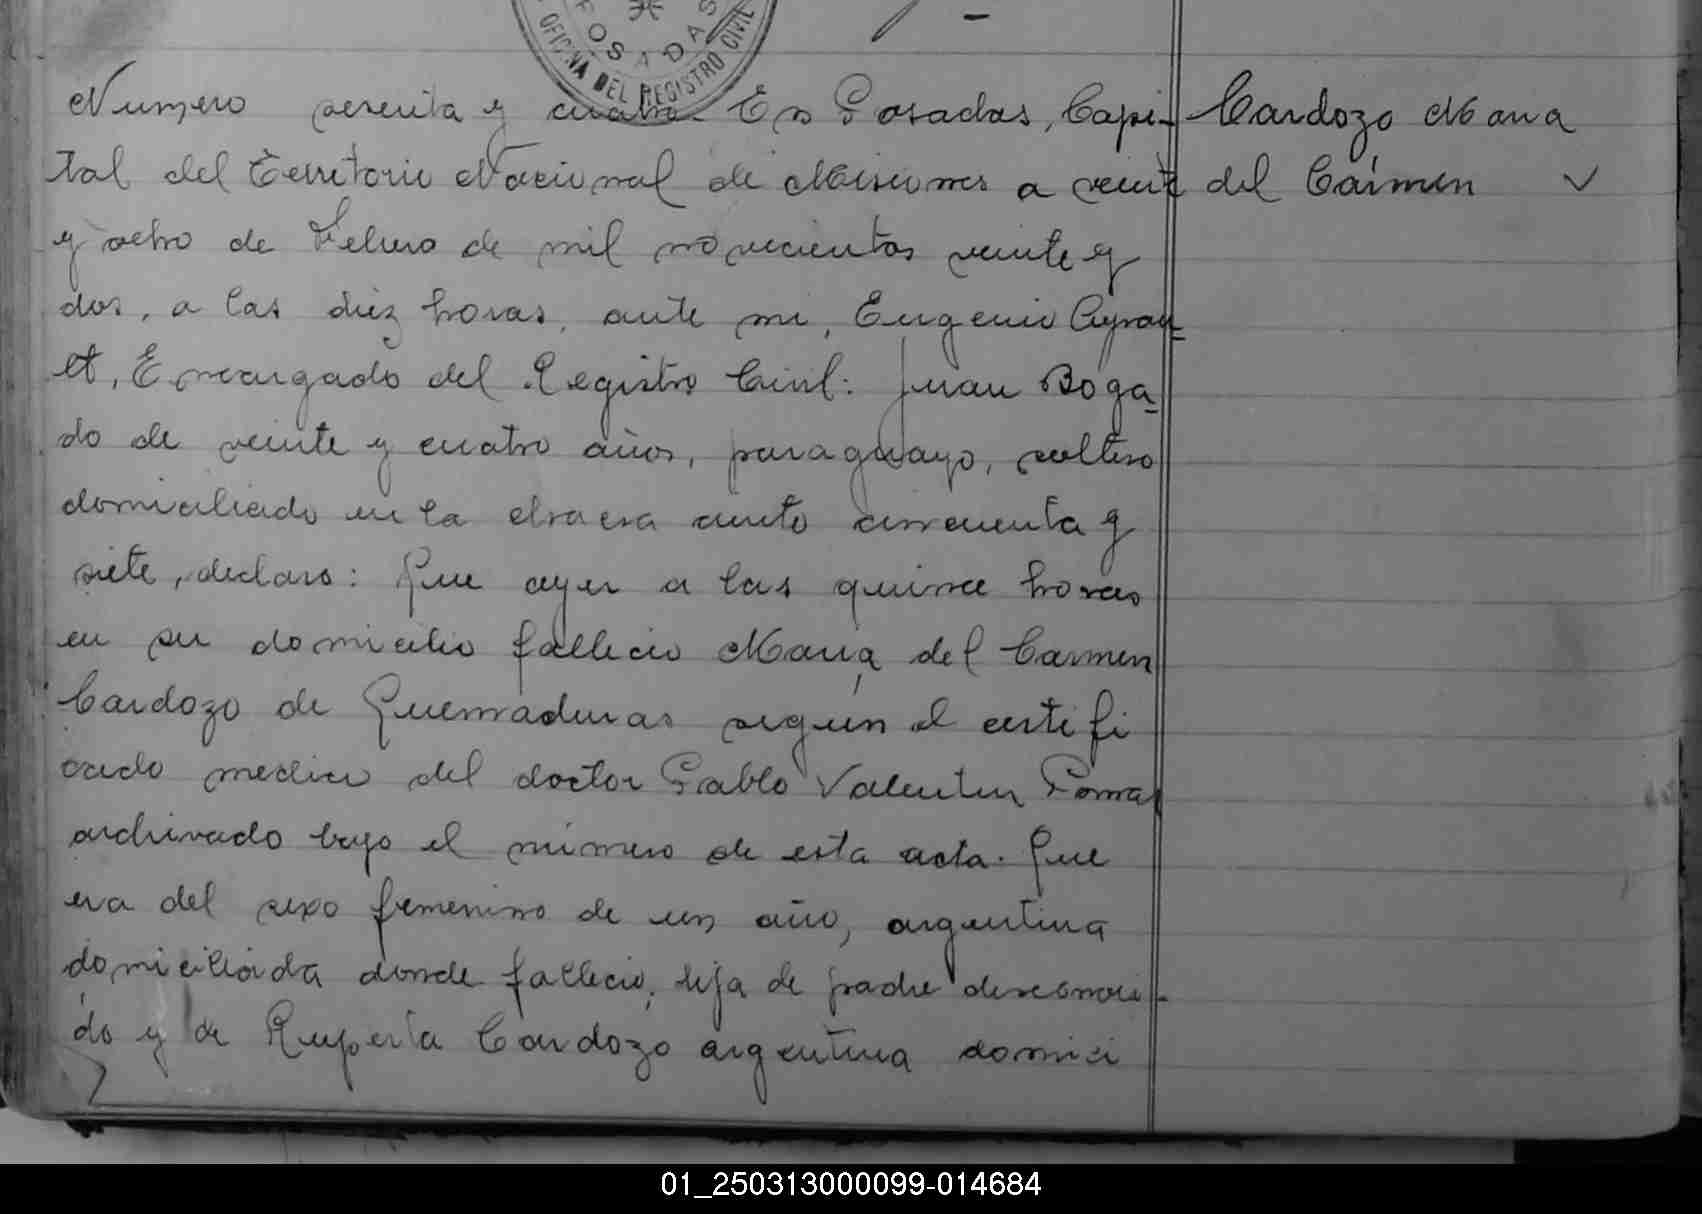 POSADAS
OFICINA DEL REGISTRO CIVIL
Numero sesenta y cuatro. En Posadas, Capi-
tal del Territorio Nacional de Misiones a veinte
y ocho de Febrero de mil novecientos veinte y
dos, a las diez horas, ante mi, Eugenio
et, Encargado del Registro Civil: Juan Boga-
do de veinte y cuatro años, paraguayo, soltero
domiciliado en la chacra ciento cincuenta y
siete, declaro: Que ayer a las quince horas
en su domicilio fallecio Maria del Carmen
Cardozo de Quemaduras segun el certifi
cado medico del doctor Pablo Valentin
archivado bajo el numero de esta acta. Que
era del sexo femenino de un año, argentina
domiciliada donde fallecio, hija de padre desconoci-
do y de Ruperta Cardozo argentina domici
Cardozo Maria
del Carmen
01_250313000099-014684